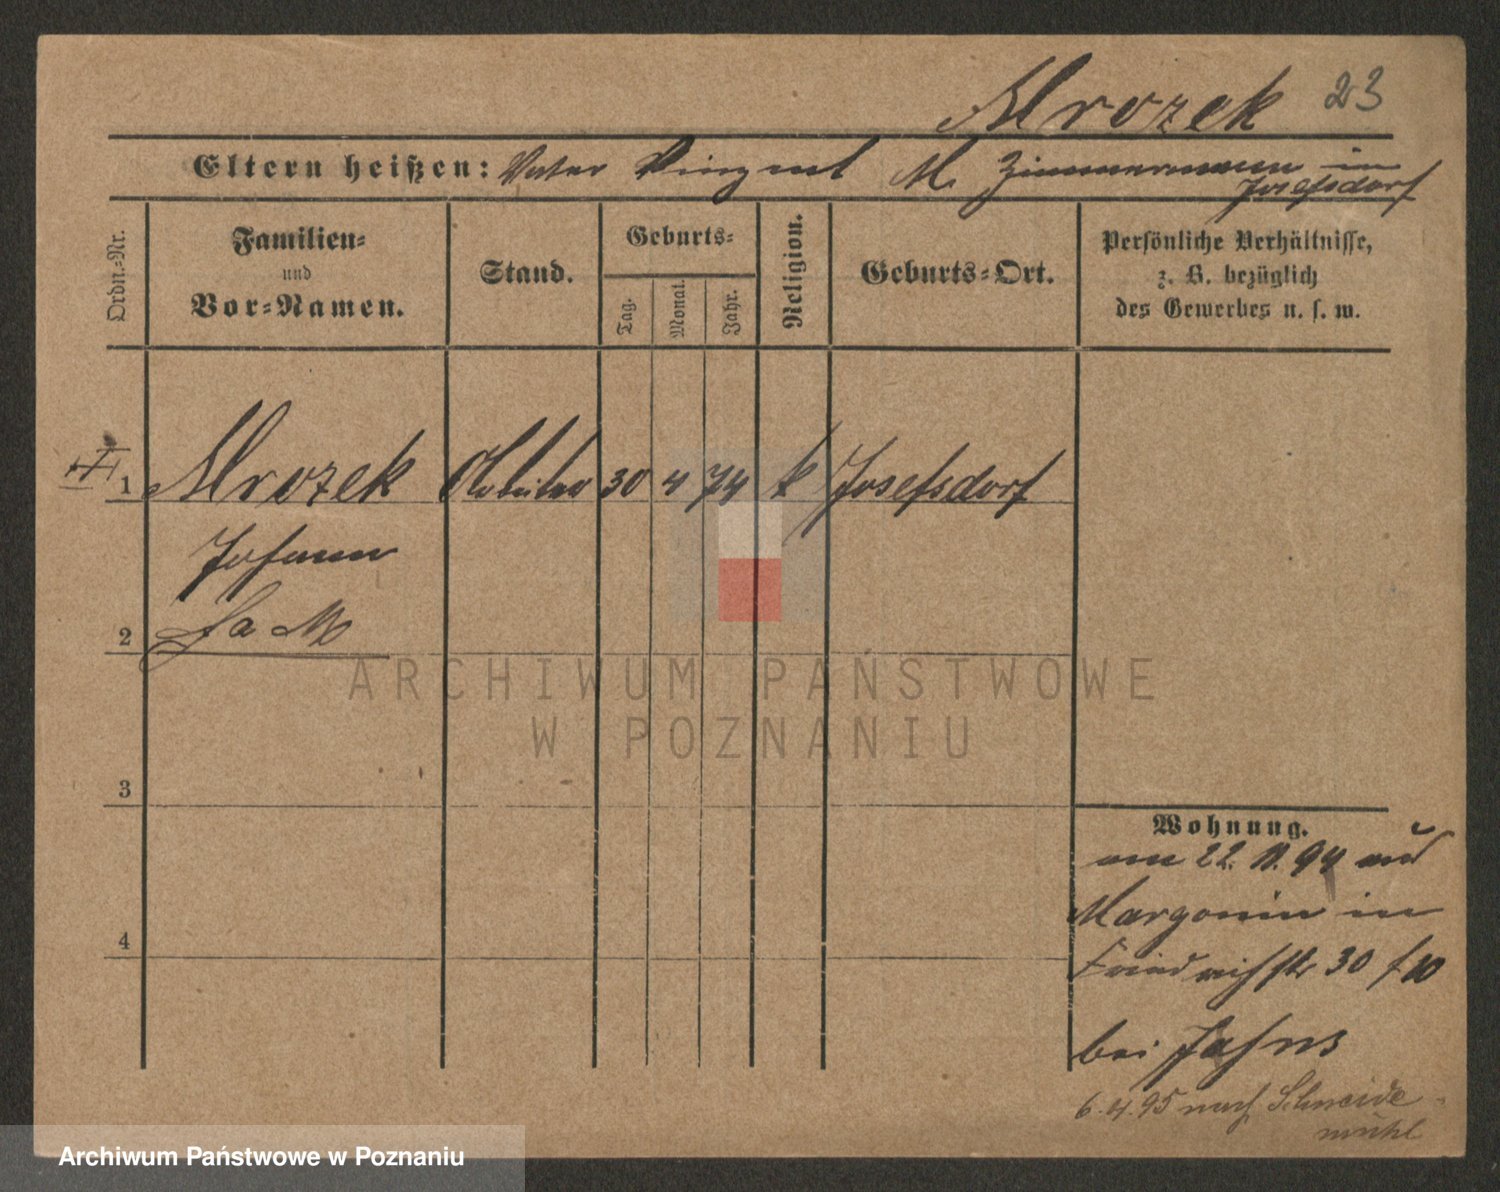 Mrozek 23
Eltern heißen: Vater Vinzent M. Zimmermann in
Josefsdorf
Ordn.-Nr.
Familien-
und
Vor-Namen.
Stand.
Geburts-
Tag.
Monat.
Jahr.
Religion.
Geburts-Ort.
Persönliche Verhältnisse,
z. B. bezüglich
des Gewerbes u. s. w.
1 Mrozek Arbeiter 30 4 74 k Josefsdorf
Johann
2
3
4
Wohnung.
am 22. 11. 94 aus
Margonin in
Friedrichstr 30
bei Jahns
6.4.95 nach Schneide-
mühl
ARCHIWUM PAŃSTWOWE
W POZNANIU
Archiwum Państwowe w Poznaniu